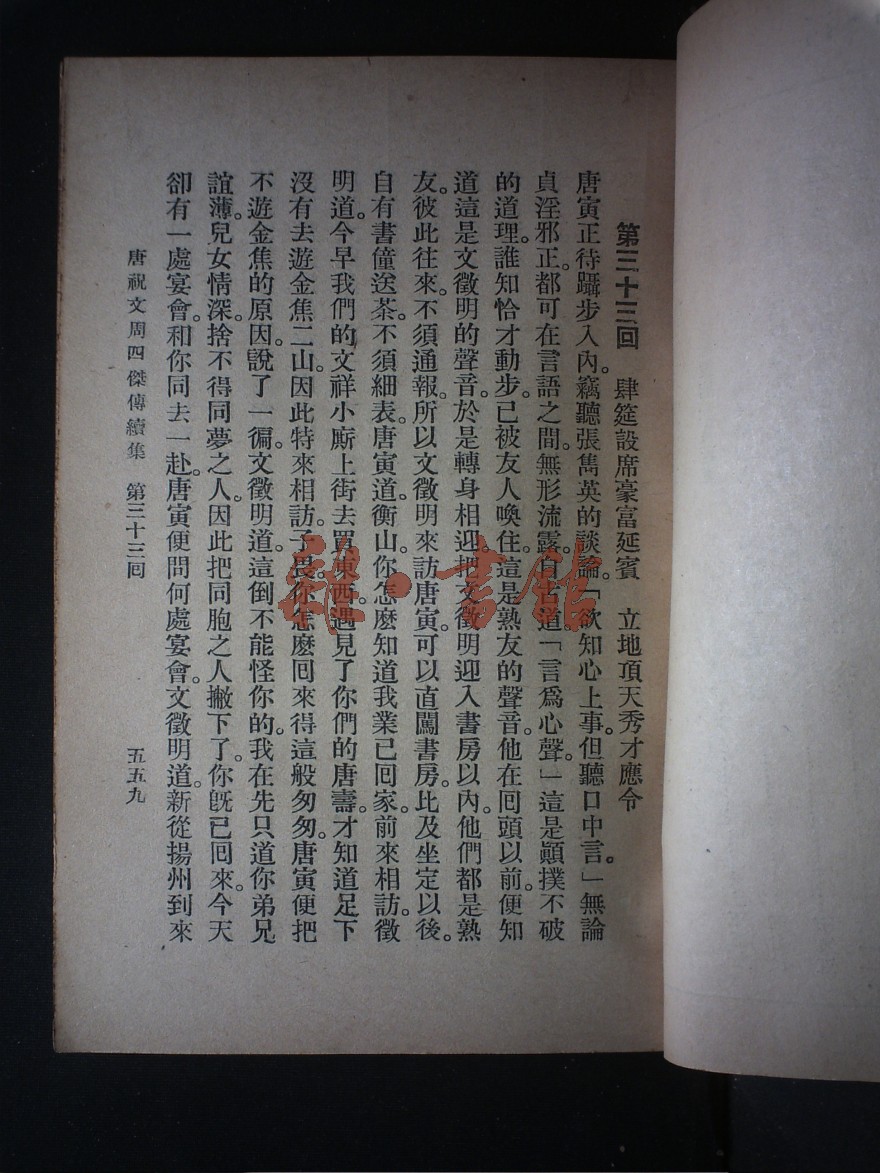 第三十三回　肆筵設席豪富延賓　立地頂天秀才應令
唐寅正待躡步入內。竊聽張雋英的談論。「欲知心上事。但聽口中言。」無論
貞淫邪正。都可在言語之間。無形流露。自古道。「言爲心聲。」這是顚撲不破
的道理。誰知恰才動步。已被友人喚住。這是熟友的聲音。他在回頭以前。便知
道這是文徵明的聲音。於是轉身相迎。把文徵明迎入書房以內。他們都是熟
友。彼此往來。不須通報。所以文徵明來訪唐寅。可以直闖書房。比及坐定以後。
自有書僮送茶。不須細表。唐寅道。衡山。你怎麽知道我業已回家。前來相訪。徵
明道。今早我們的文祥小廝上街去買東西。遇見了你們的唐壽。才知道足下
沒有去遊金焦二山。因此特來相訪。子畏。你怎麽回來得這般匆匆。唐寅便把
不遊金焦的原因。說了一徧。文徵明道。這倒不能怪你的。我在先只道你弟兄
誼薄。兒女情深。捨不得同夢之人。因此把同胞之人撇下了。你旣已回來。今天
卻有一處宴會。和你同去一赴。唐寅便問何處宴會。文徵明道。新從揚州到來
唐祝文周四傑傳續集　第三十三回　五五九
雜·書館